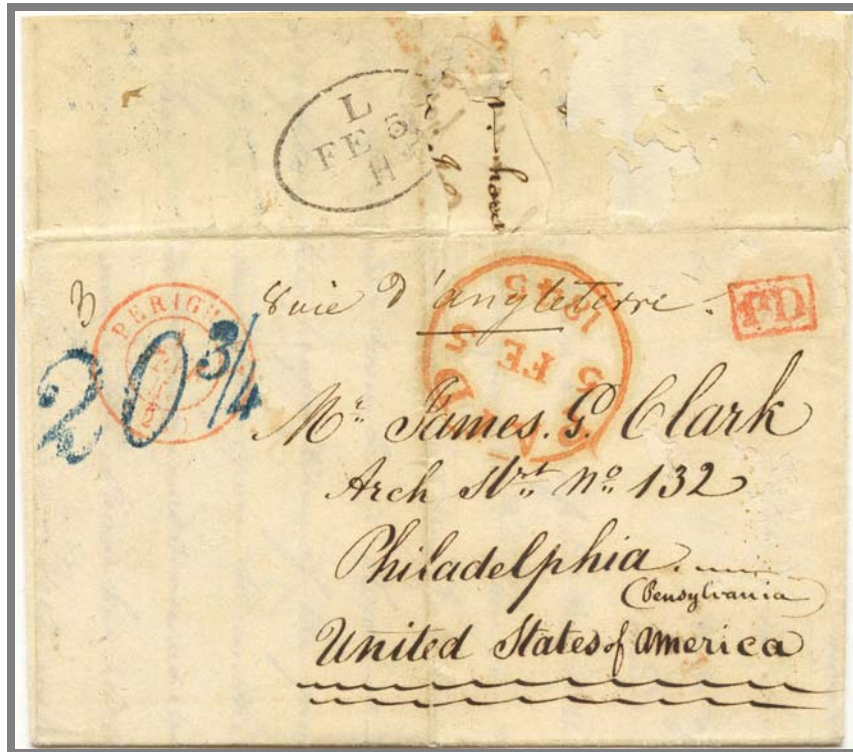 L
FE 3
H
PERIGU
Voie d'angleterre.
1845
5 FE 5
PD
20 3/4
Mr. James. G. Clark
Arch Strt. No. 132
Philadelphia.
(Pensylvania)
United States of america